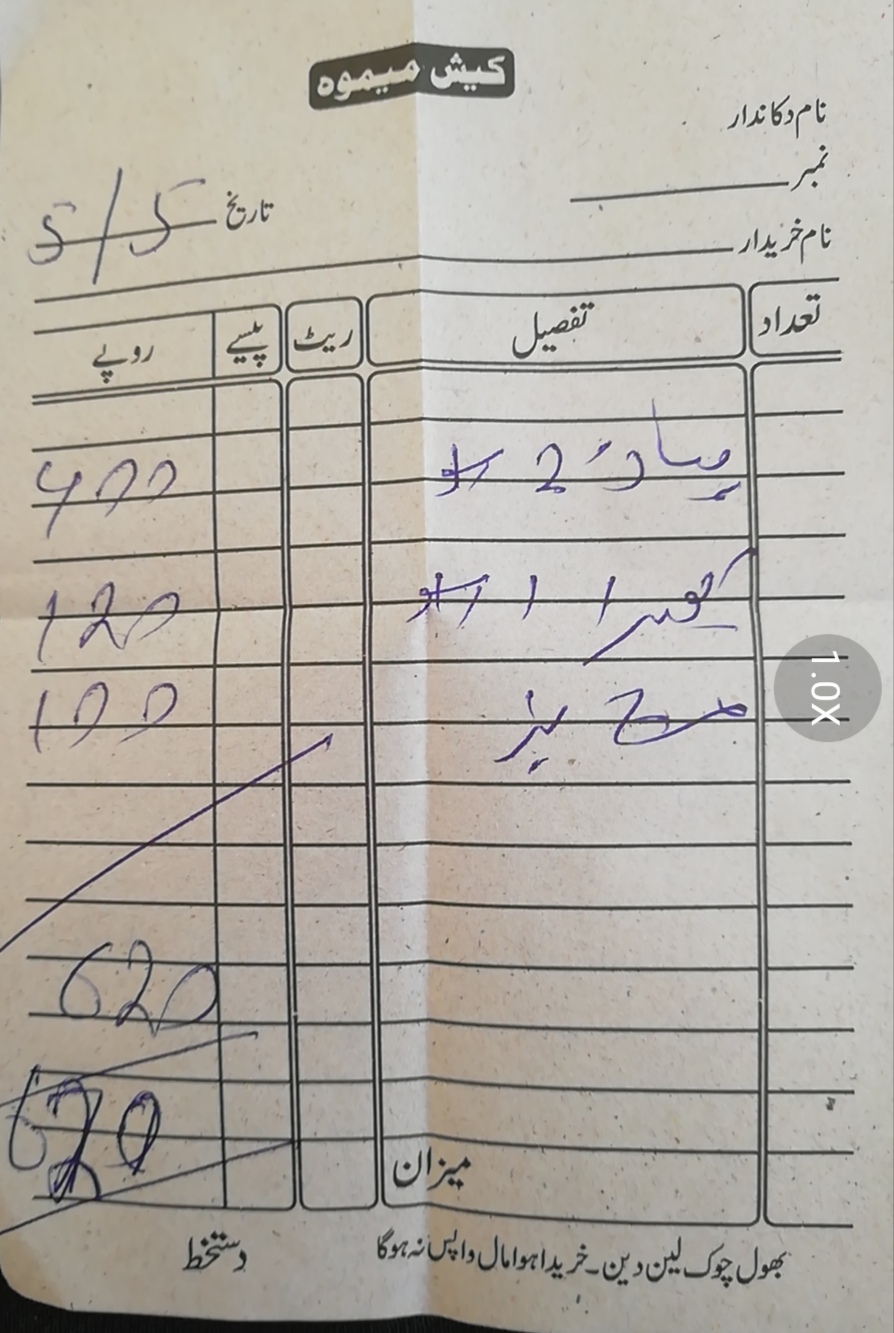 کیش میمو
نام دکاندار
نمبر
تاریخ 5/5
نام خریدار
تعداد تفصیل ریٹ پیسے روپے
2 400
کھیرا 1 120
100
620
میزان 620
بھول چوک لین دین۔ خریدا ہوا مال واپس نہ ہوگا
دستخط
1.0X